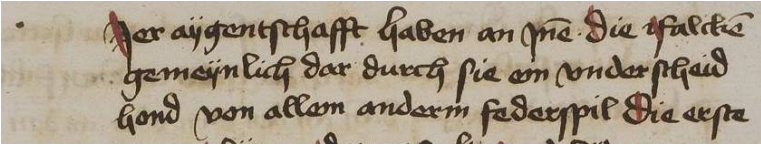 Der aÿgentschafft haben an jnē die falckē
gemeÿnlich dar durch sie ein vnderscheid
hond von allem anderm federspil Die erste